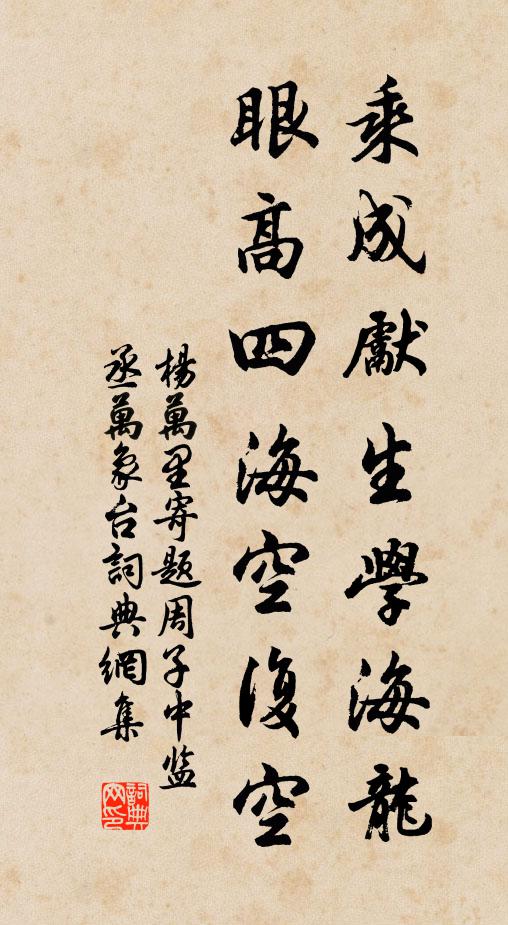 乘成獻生學海龍
眼高四海空復空
楊萬里寄題周子中监
丞萬象台詞典網集
詞典
网印